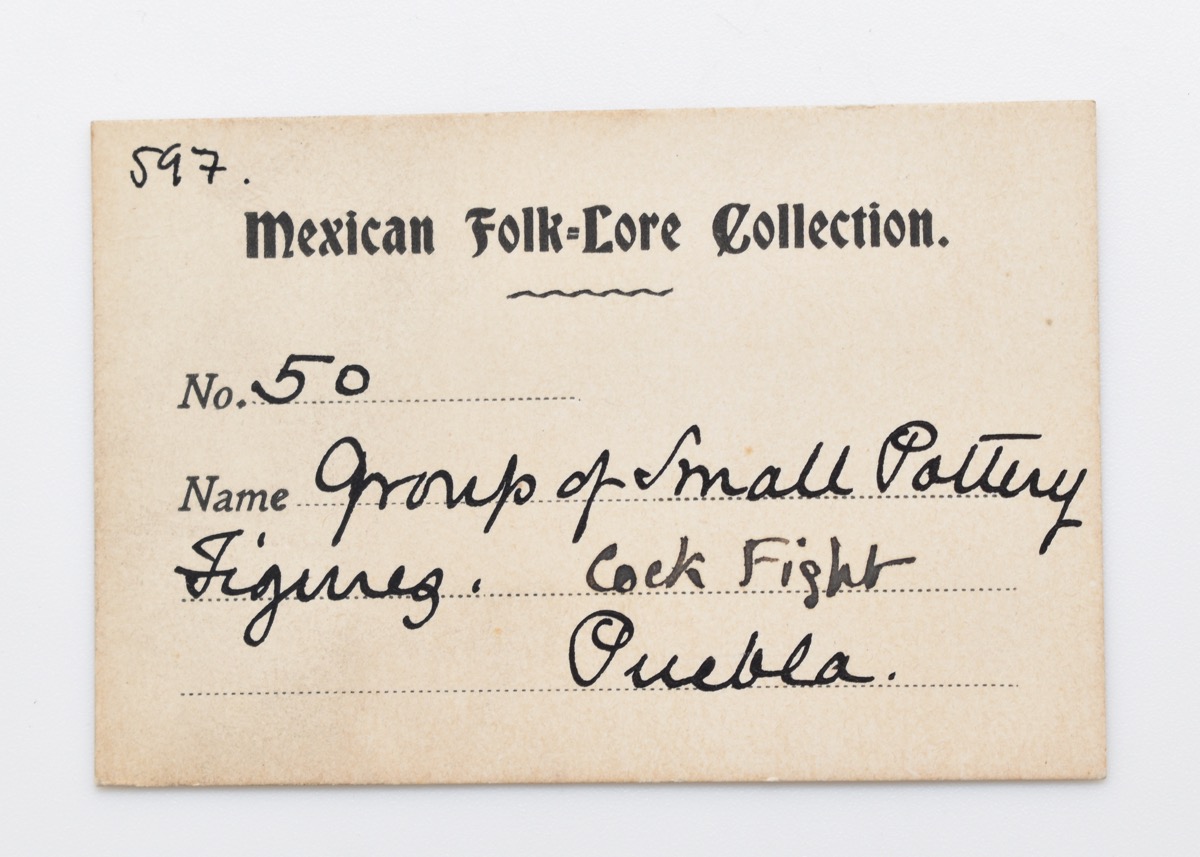 597.
Mexican Folk-Lore Collection.
No. 50
Name Group of Small Pottery
Figures. Cock Fight
Puebla.